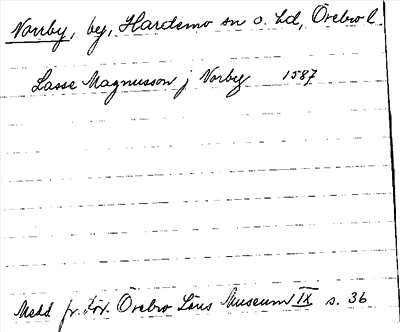 Norrby, by, Hardemo sn o. hd, Örebro l.
Lasse Magnusson j Norby 1587
Medd fr. För. Örebro Läns Museum IX s. 36